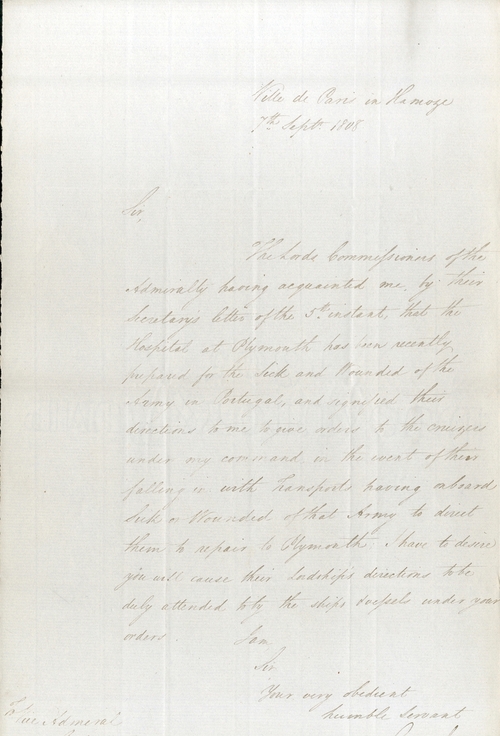 Ville de Paris in Hamoze
7th Septr. 1808
Sir,
The Lords Commissioners of the
Admiralty having acquainted me, by their
Secretary's letter of the 5th instant, that the
Hospital at Plymouth has been recently
prepared for the Sick and Wounded of the
Army in Portugal, and signified their
directions to me to give orders to the cruizers
under my command in the event of their
falling in with Transports having onboard
Sick or Wounded of that Army to direct
them to repair to Plymouth. I have to desire
you will cause their Lordship's directions to be
duly attended to by the ships & vessels under your
orders.
I am
Sir
Your very obedient
humble servant
Vice Admiral